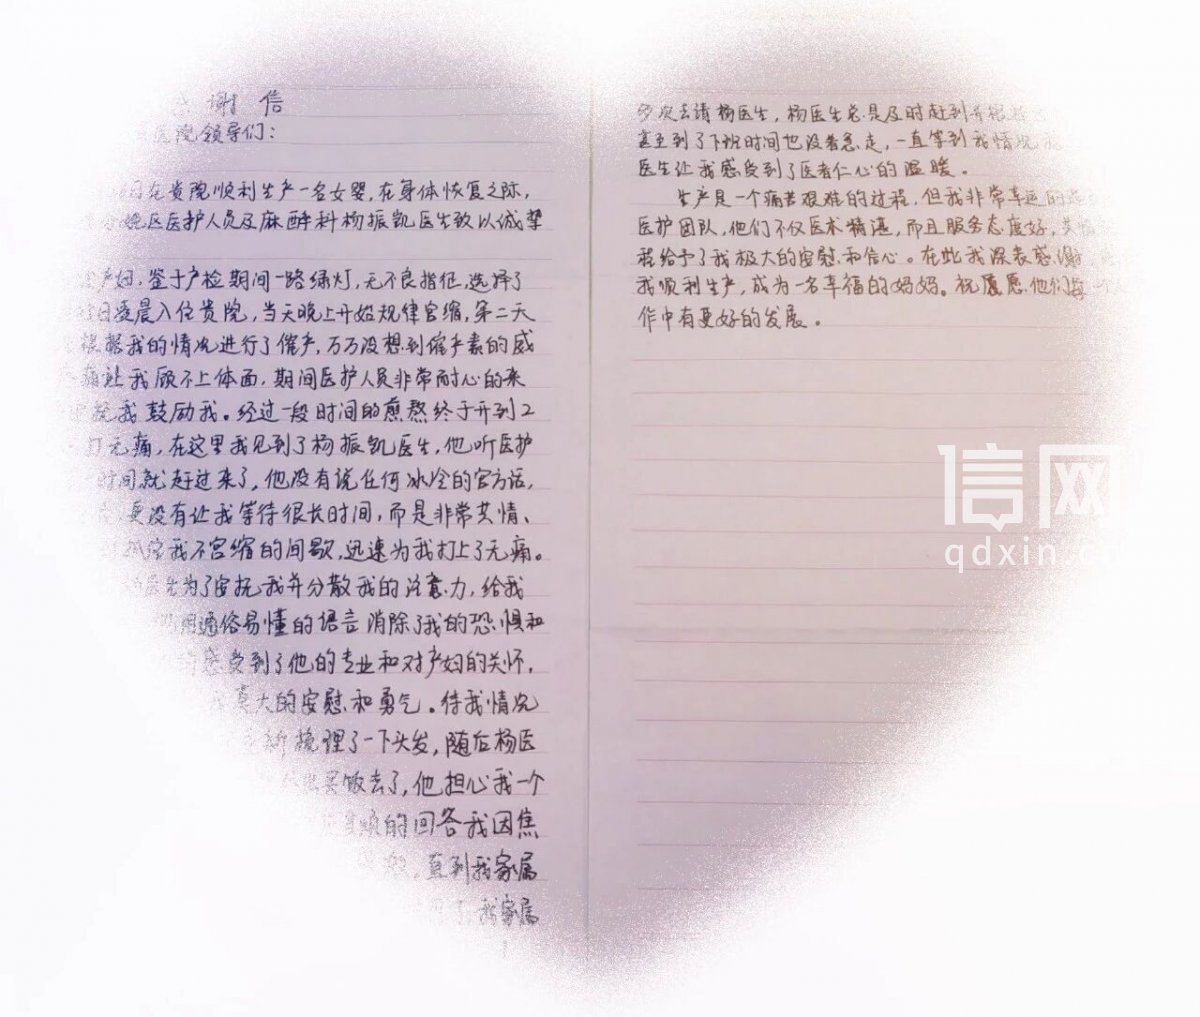 谢信
医院领导们：
日在贵院顺利生产一名女婴，在身体恢复之际，
分娩区医护人员及麻醉科杨振凯医生致以诚挚
产妇，鉴于产检期间一路绿灯，无不良指征，选择了
日凌晨入住贵院，当天晚上开始规律宫缩，第二天
根据我的情况进行了催产，万万没想到催产素的威
痛让我顾不上体面，期间医护人员非常耐心的来
抚我鼓励我。经过一段时间的煎熬终于开到2
打无痛，在这里我见到了杨振凯医生，他听医护
时间就赶过来了，他没有说任何冰冷的官方话，
更没有让我等待很长时间，而是非常共情、
我不宫缩的间歇，迅速为我打上了无痛。
为了安抚我并分散我的注意力，给我
用通俗易懂的语言消除了我的恐惧和
感受到了他的专业和对产妇的关怀，
莫大的安慰和勇气。待我情况
新梳理了一下头发，随后杨医
买饭去了，他担心我一个
烦的回答我因焦
直到我家属
我家属
多次去请杨医生，杨医生总是及时赶到并根据
甚至到了下班时间也没着急走，一直等到我情况
医生让我感受到了医者仁心的温暖。
生产是一个痛苦艰难的过程，但我非常幸运的
医护团队，他们不仅医术精湛，而且服务态度好，
程给予了我极大的安慰和信心。在此我深表感谢
我顺利生产，成为一名幸福的妈妈。祝愿他们每一
作中有更好的发展。
信网
qdxin.co